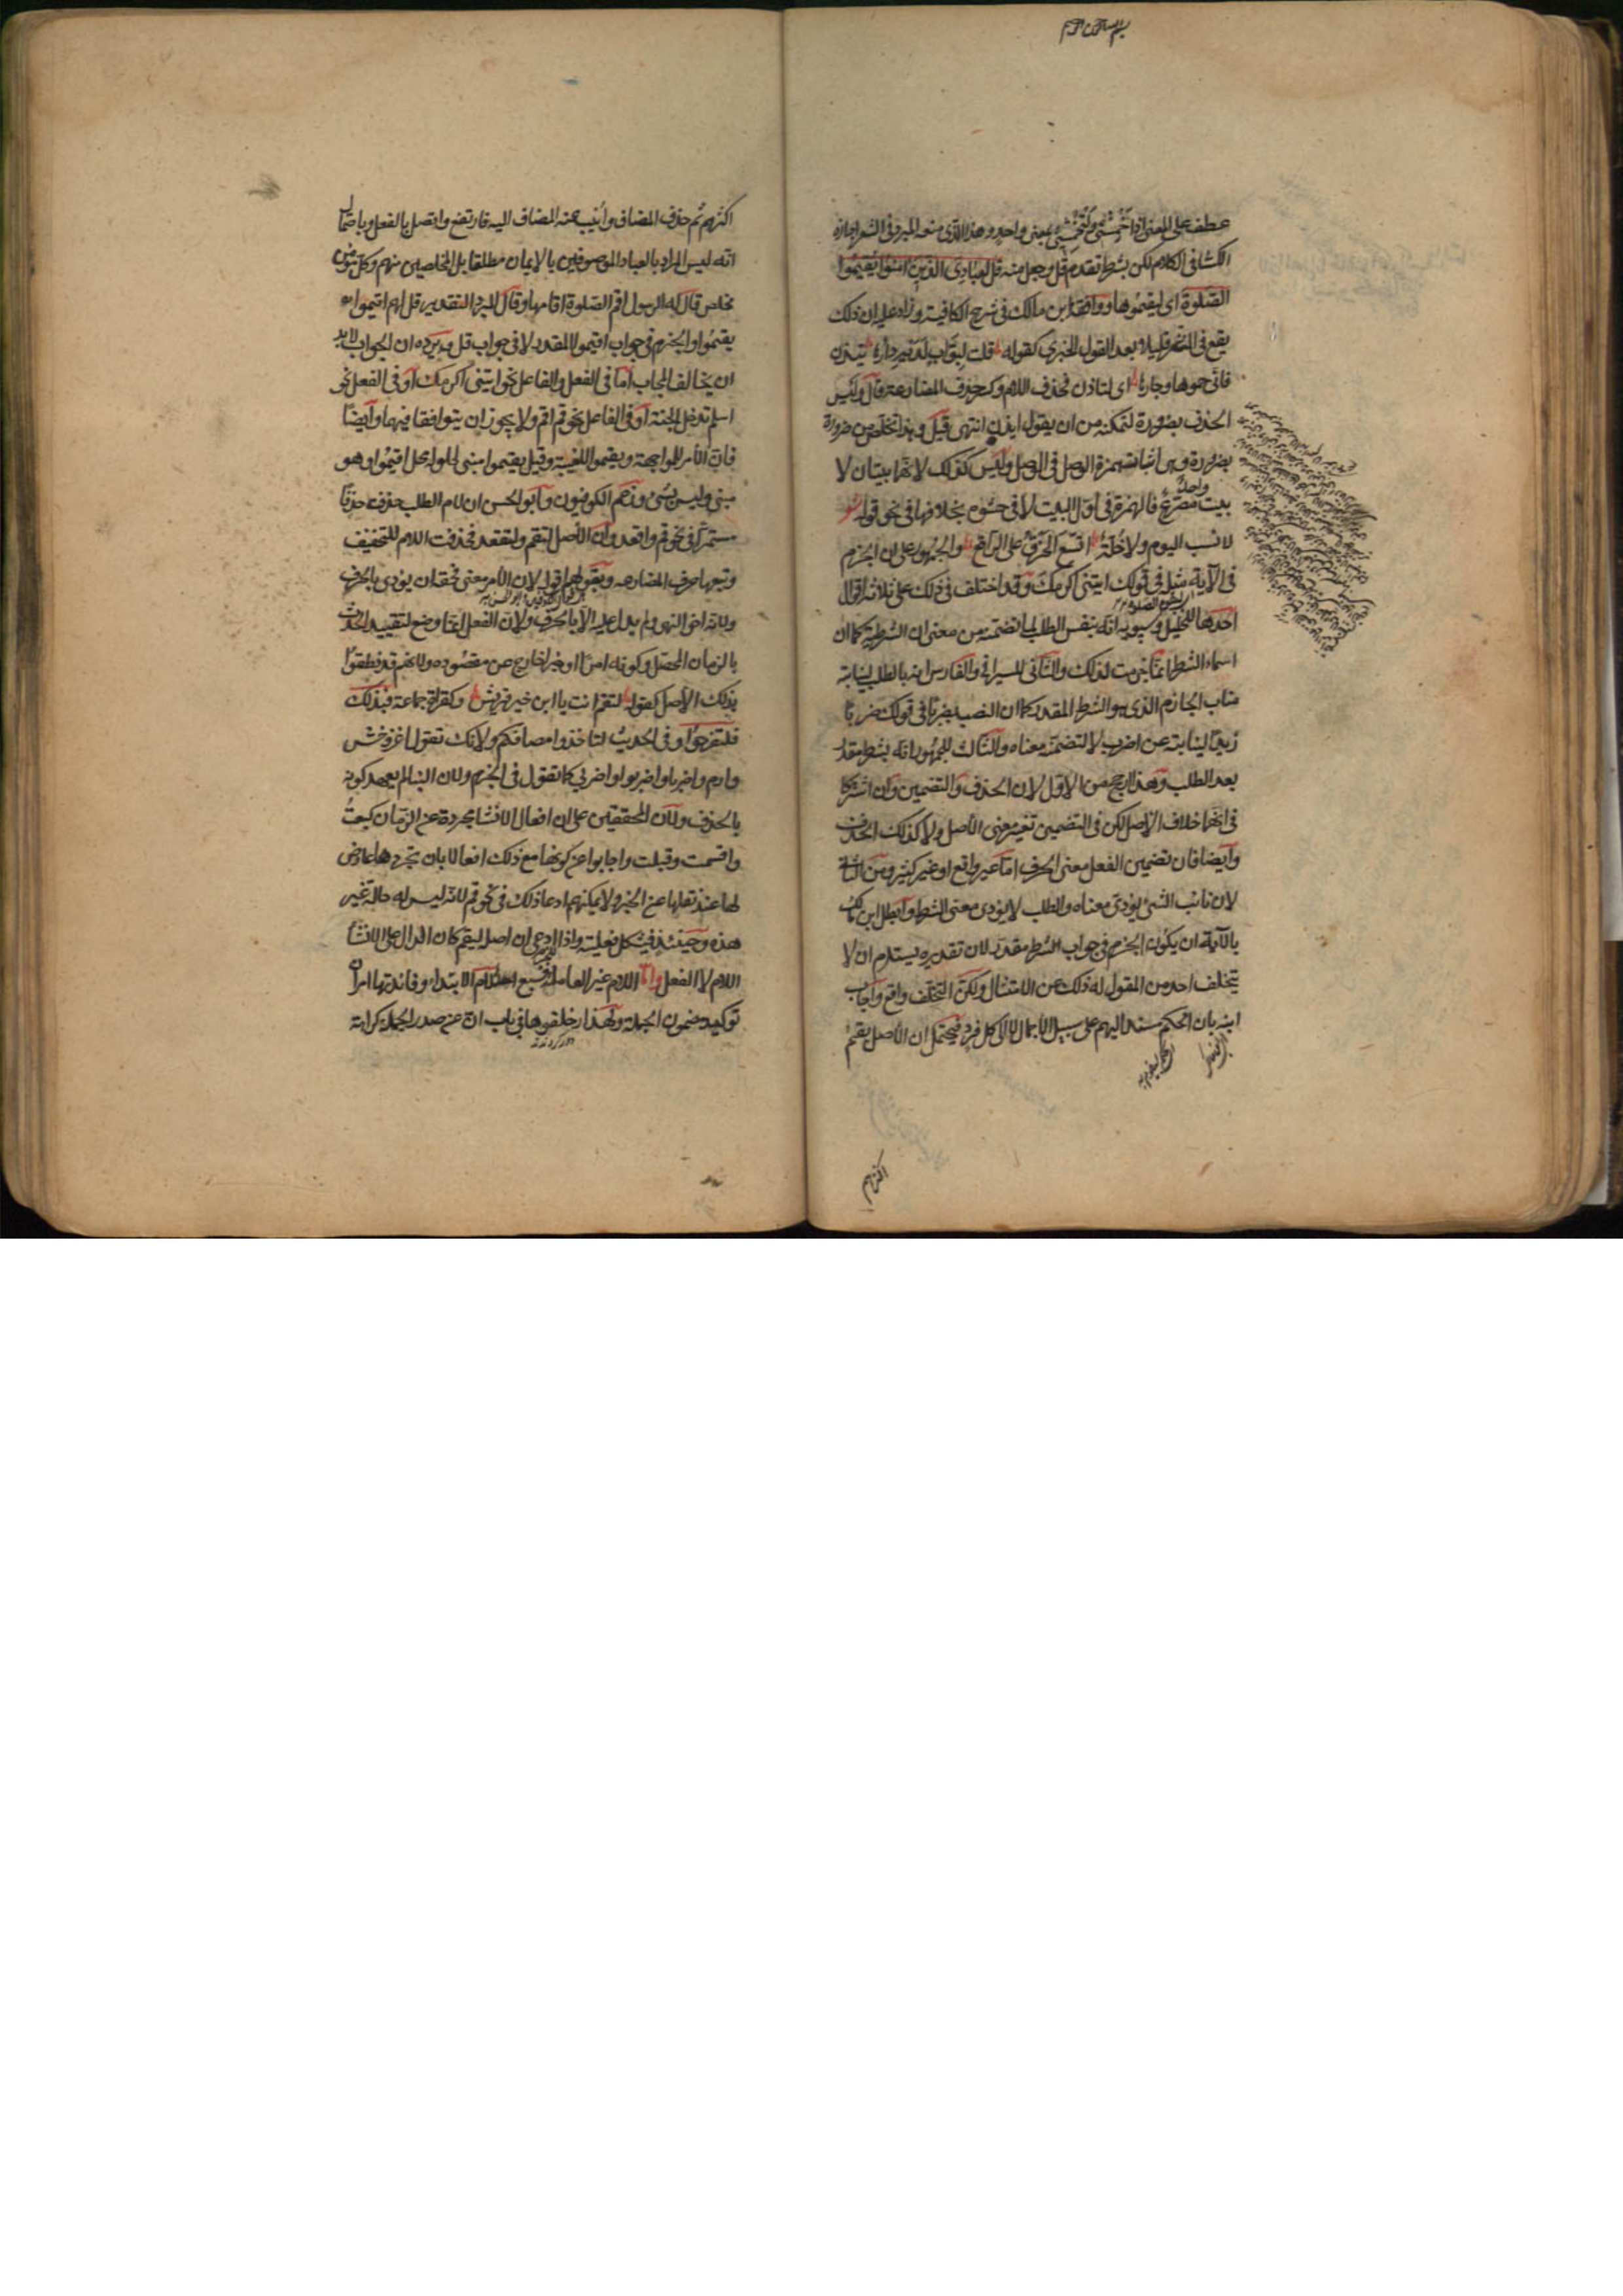 بسم الله الرحمن الرحيم
عطف على المعنى اذ اخمشى ولتخمشى بمعنى واحد وهذا الذى منعه المبرد فى الشعر اجازه
الكسائى فى الكلام لكن بشرط تقدم قل وجعل منه قل لعبادى الذين امنوا يقيموا
الصلوة اى ليقيموها ووافقه ابن مالك فى شرح الكافية وزاد عليه ان ذلك
يقع فى النثر قليلا بعد القول الخبرى كقوله قلت لبواب لديه دارها تيذن
فانى حموها وجارها اى لتاذن فحذف اللام وكسر حرف المضارعة قال وليس
الحذف بضرورة لتمكنه من ان يقول ايذن انتهى قيل وهذا تخلص من ضرورة
بضرورة وهى اثبات همزة الوصل فى الوصل وليس كذلك لانهما بيتان لا
بيت واحد مصرع فالهمزة فى اول البيت لا فى حشوه بخلافها فى نحو قوله
لا نسب اليوم ولا خلة اتسع الخرق على الراقع والجمهور على ان الجزم
فى الآية مثله فى قولك ايتنى اكرمك وقد اختلف فى ذلك على ثلاثة اقوال
احدها للخليل وسيبويه انه بنفس الطلب لما تضمنه من معنى ان الشرطية كما ان
اسماء الشرط انما جزمت لذلك والثانى للسيرافى والفارسى انه بالطلب لنيابته
مناب الجازم الذى هو الشرط المقدر كما ان النصب بضربا فى قولك ضربا
زيدا لنيابته عن اضرب لا لتضمنه معناه والثالث للجمهور انه بشرط مقدر
بعد الطلب وهذا ارجح من الاول لان الحذف والتضمين وان اشتركا
فى انهما خلاف الاصل لكن فى التضمين تغيير معنى الاصل ولا كذلك الحذف
وايضا فان تضمين الفعل معنى الحرف اما غير واقع او غير كثير ومن الثانى
لان نائب الشئ يؤدى معناه والطلب لا يؤدى معنى الشرط وابطل ابن مالك
بالآية ان يكون الجزم فى جواب الشرط مقدر لان تقديره يستلزم ان لا
يتخلف احد من المقول له ذلك عن الامتثال ولكن التخلف واقع واجاب
ابنه بان الحكم مسند اليهم على سبيل الاجمال لا الى كل فرد فيحتمل ان الاصل يقيم
اكثرهم
اكثرهم ثم حذف المضاف وانيب عنه المضاف اليه فارتفع واتصل بالفعل وباحتمال
انه ليس المراد بالعباد الموصوفين بالايمان مطلقا بل المخلصين منهم وكل مؤمن
مخلص قال له الرسول اقم الصلوة اقامها وقال المبرد التقدير قل لهم اقيموا
يقيموا والجزم فى جواب اقيموا المقدر لا فى جواب قل ويرده ان الجواب لا بد
ان يخالف المجاب اما فى الفعل والفاعل نحو ايتنى اكرمك او فى الفعل نحو
اسلم تدخل الجنة او فى الفاعل نحو قم اقم ولا يجوز ان يتوافقا فيهما وايضا
فان الأمر للمواجهة ويقيموا للغيبة وقيل يقيموا مبنى لحلوله محل اقيموا وهو
مبنى وليس بشئ وزعم الكوفيون وابو الحسن ان لام الطلب حذفت حذفا
مستمرا فى نحو قم واقعد وان الأصل لتقم ولتقعد فحذفت اللام للتخفيف
وتبعها حرف المضارعه وبقولهم اقول لان الأمر معنى فحقه ان يؤدى بالحرف
ولانه اخو النهى ولم يدل عليه الا بالحرف ولان الفعل انما وضع لتقييد الحدث
بالزمان المحصل وكونه امرا او خبرا خارج عن مقصوده ولانهم قد نطقوا
بذلك الأصل كقوله لتقم انت يا ابن خير قريش وكقراة جماعة فبذلك
فلتفرحوا وفى الحديث لتاخذوا مصافكم ولانك تقول اغز واخش
وارم واضربا واضربوا واضربى كما تقول فى الجزم ولان البنا لم يعهد كونه
بالحذف ولان المحققين على ان افعال الانشا مجردة عن الزمان كبعت
واقسمت وقبلت واجابوا عن كونها مع ذلك افعالا بان تجردها عارض
لها عند نقلها عن الخبر ولا يمكنهم ادعا ذلك فى نحو قم لانه ليس له حالة غير
هذه وحينئذ فيشكل فعليته واذا ادعى ان اصله لتقم كان الدال على الانشا
اللام لا الفعل واما اللام غير العاملة فسبع احدها لام الابتداء وفائدتها امران
توكيد مضمون الجملة ولهذا زحلقوها فى باب ان عن صدر الجملة كراهة